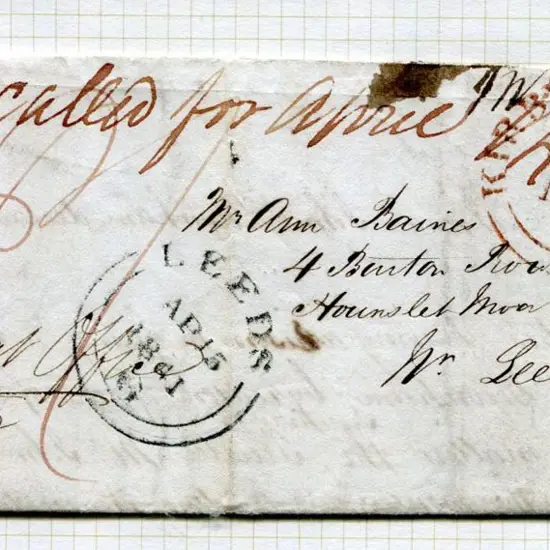 Called for April
Mrs Ann Baines
4 Benton Row
Hounslet Moor
Nr Lee
LEEDS
AP 15
1841
Office